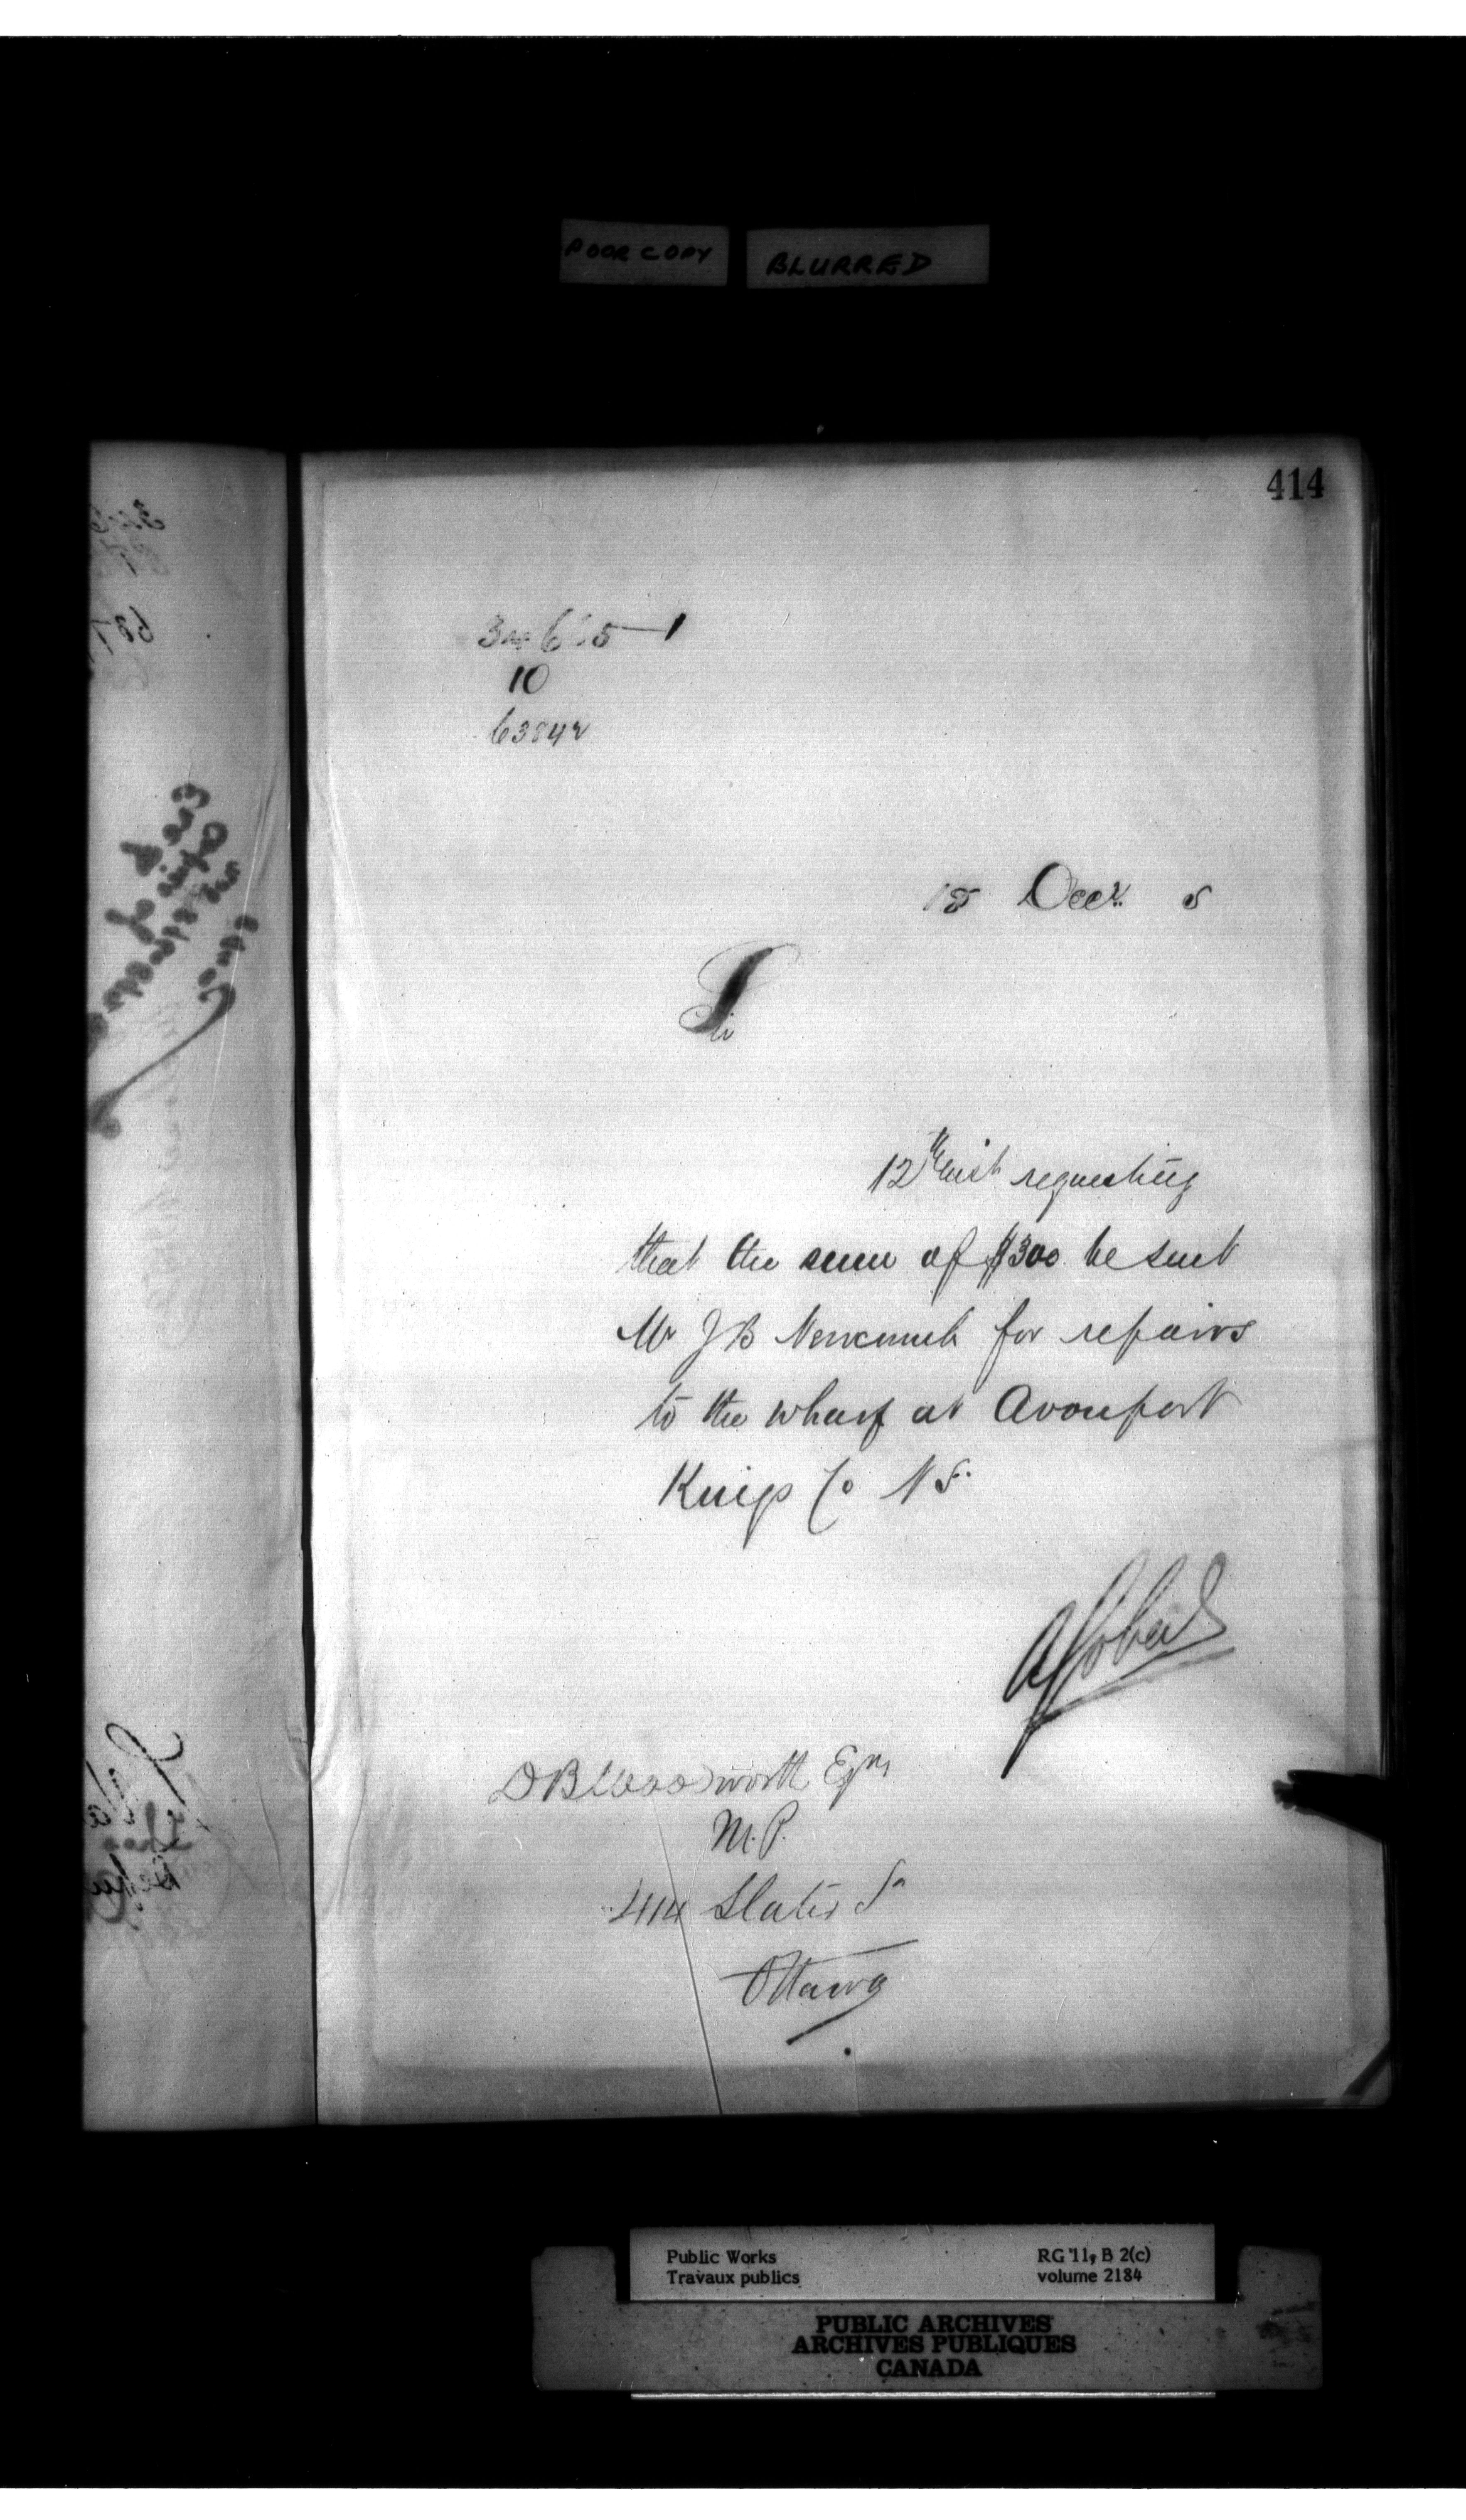 POOR COPY BLURRED
414
10
63842
18 Decr. 5
Sir
12th inst requesting
that the sum of $300 be sent
Mr J B Newcomb for repairs
to the wharf at Avonport
Kings Co N S.
D B Woodworth Esqre
M. P.
414 Slater St
Ottawa
Public Works RG 11, B 2(c)
Travaux publics volume 2184
PUBLIC ARCHIVES
ARCHIVES PUBLIQUES
CANADA